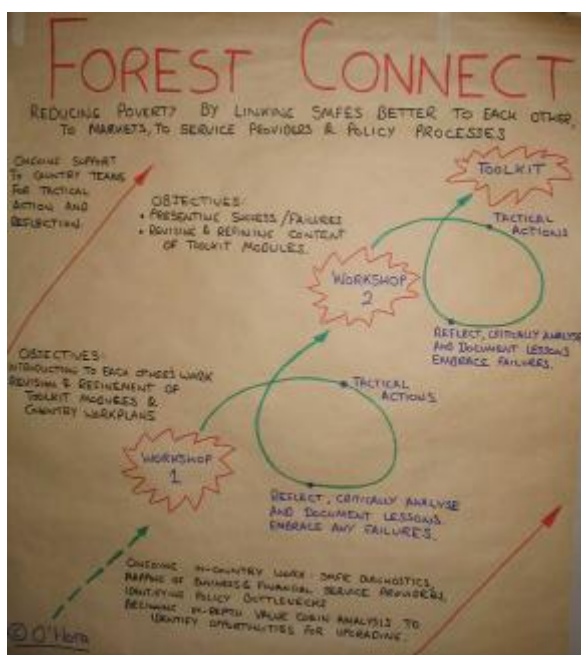 FOREST CONNECT
REDUCING POVERTY BY LINKING SMFES BETTER TO EACH OTHER,
TO MARKETS, TO SERVICE PROVIDERS & POLICY PROCESSES
ONGOING SUPPORT
TO COUNTRY TEAMS
FOR TACTICAL
ACTION AND
REFLECTION.
OBJECTIVES:
• PRESENTING SUCCESS/FAILURES
• REVISING & REFINING CONTENT
OF TOOLKIT MODULES.
TOOLKIT
TACTICAL
ACTIONS
WORKSHOP
2
REFLECT, CRITICALLY ANALYSE
AND DOCUMENT LESSONS
EMBRACE FAILURES.
OBJECTIVES:
INTRODUCTION TO EACH OTHERS WORK
REVISION & REFINEMENT OF
TOOLKIT MODULES &
COUNTRY WORKPLANS
TACTICAL
ACTIONS
WORKSHOP
1
REFLECT, CRITICALLY ANALYSE
AND DOCUMENT LESSONS.
EMBRACE ANY FAILURES.
ONGOING IN-COUNTRY WORK: SMFE DIAGNOSTICS,
MAPPING OF BUSINESS & FINANCIAL SERVICE PROVIDERS,
IDENTIFYING POLICY BOTTLENECKS
BEGINNING IN-DEPTH VALUE CHAIN ANALYSIS TO
IDENTIFY OPPORTUNITIES FOR UPGRADING.
© O'Hara